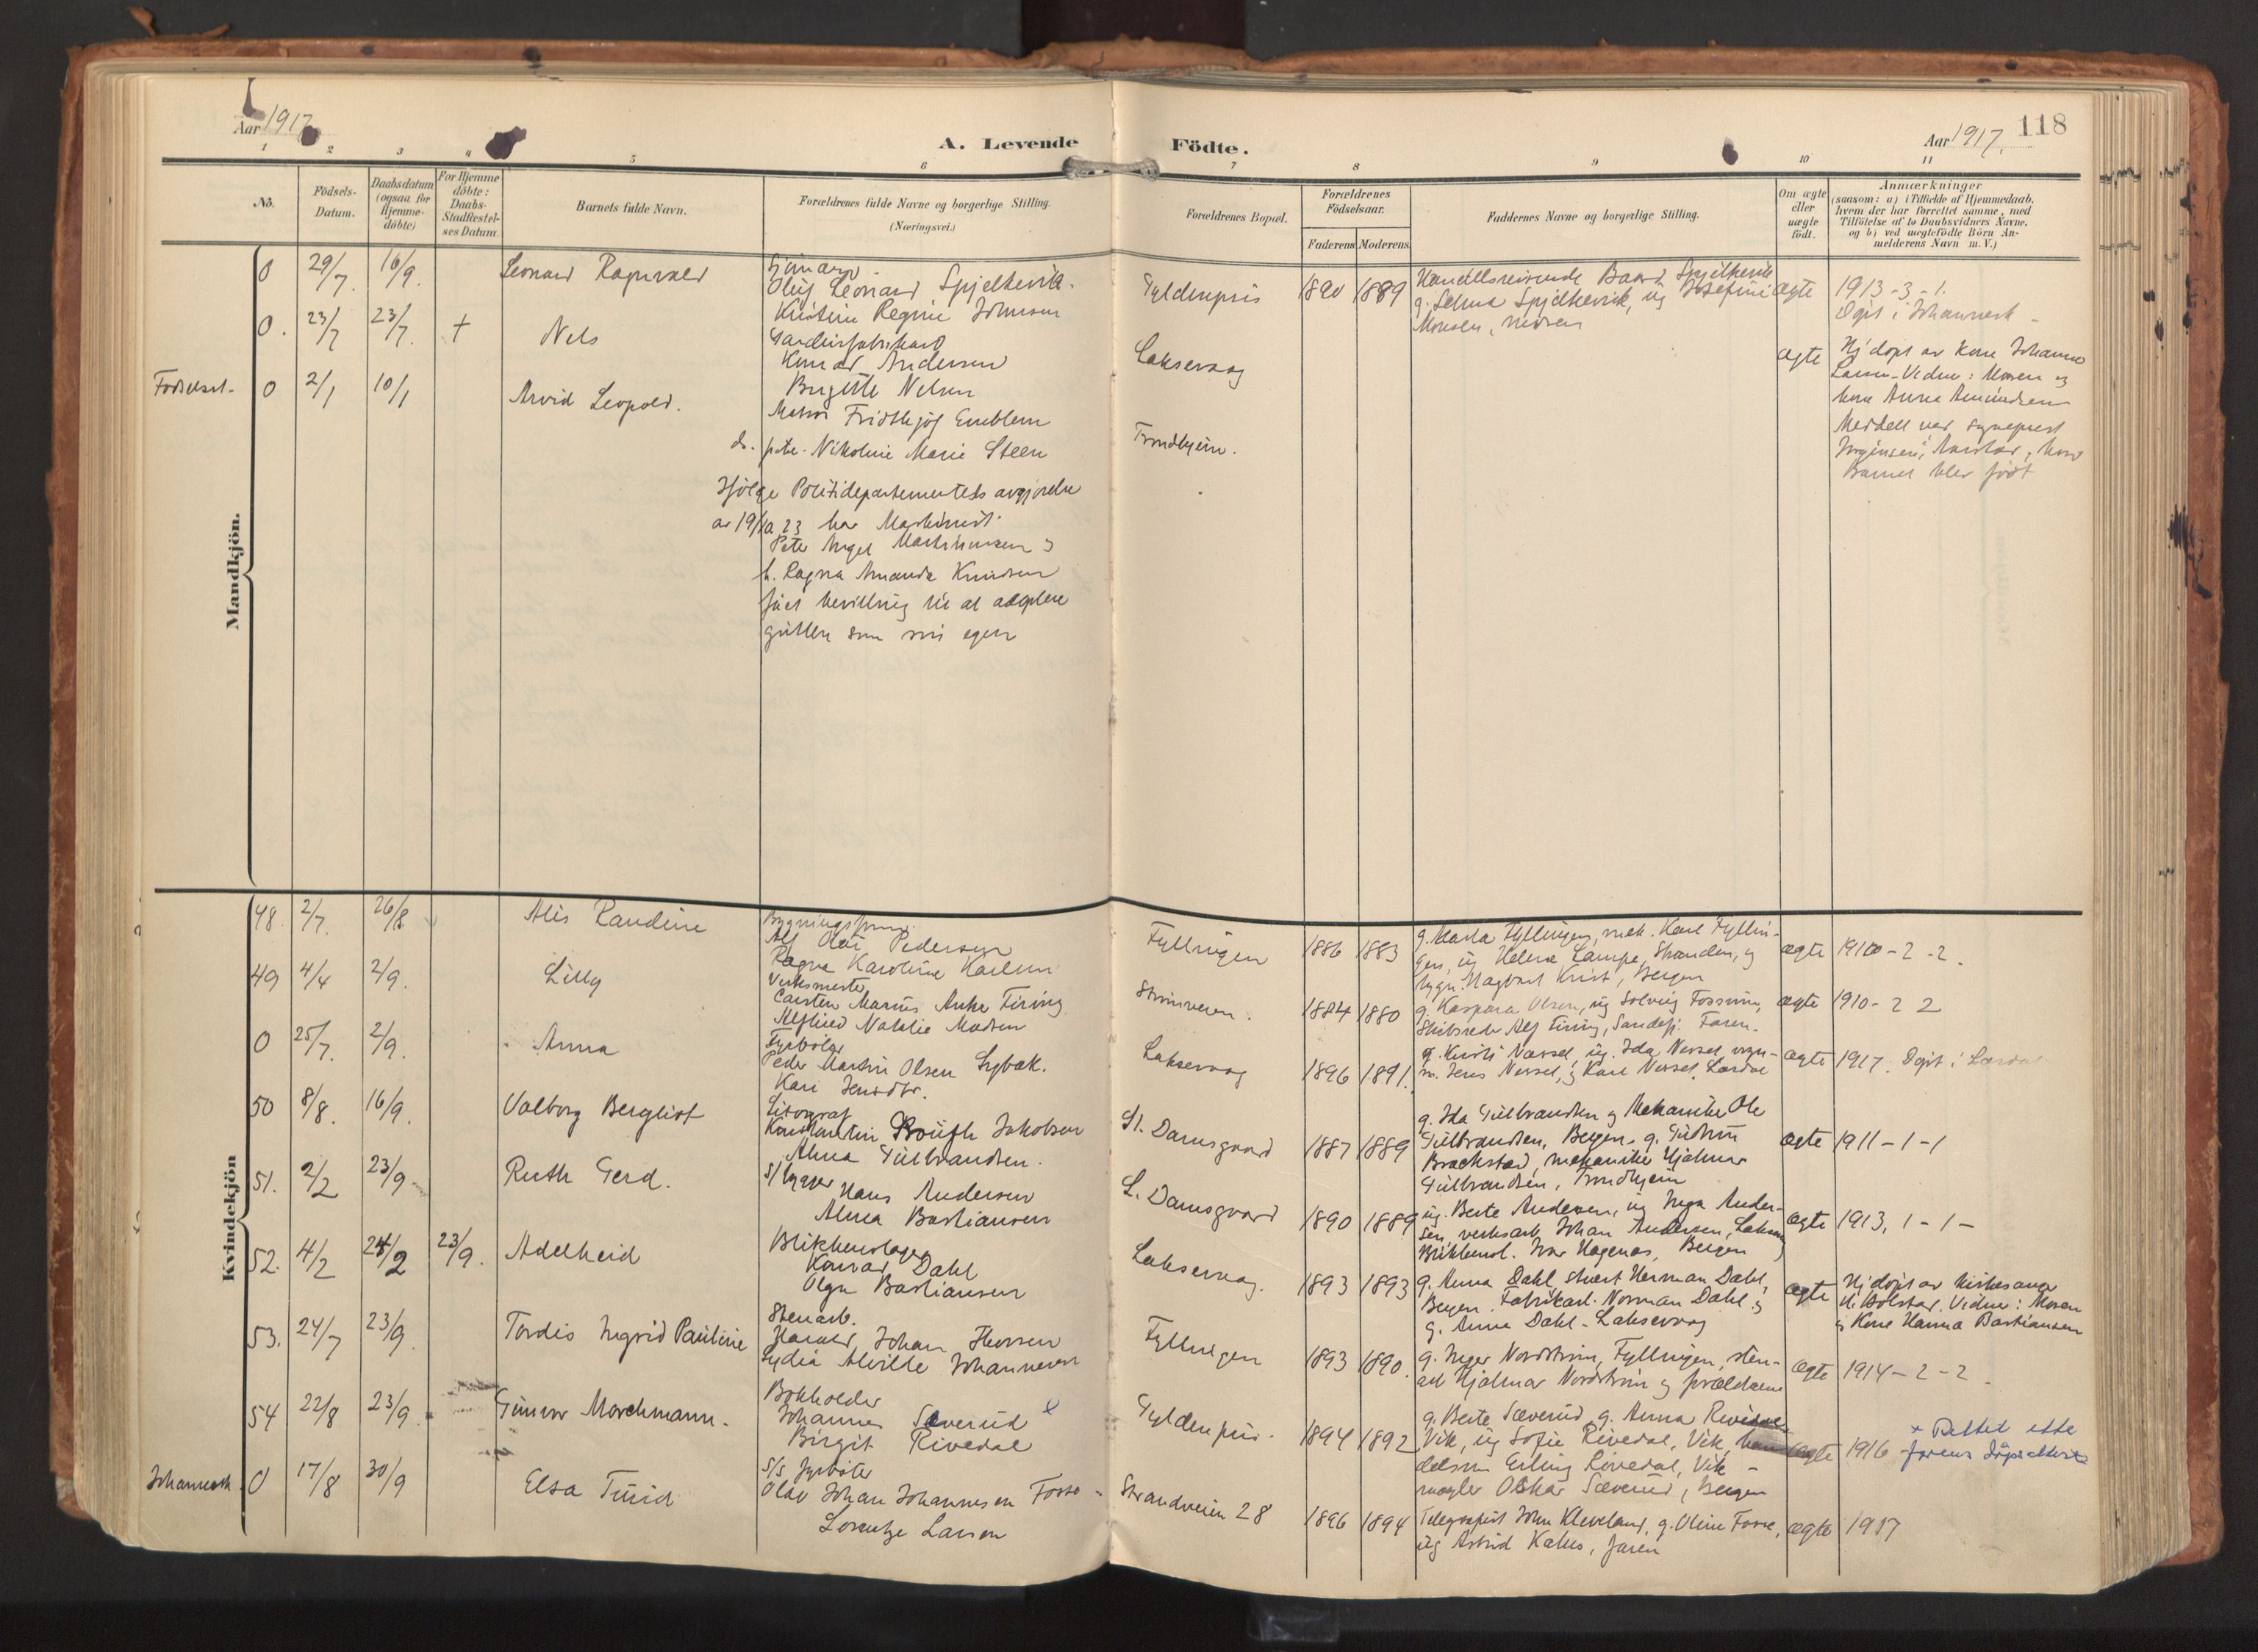 Aar 1917
A. Levende Födte.
Aar 1917. 118
1 2 3 4 5 6 7 8 9 10 11
No.
Födsels-Datum.
Daabsdatum (ogsaa for Hjemme-döbte)
For Hjemme döbte: Daabs-Stadfæstel-ses Datum.
Barnets fulde Navn.
Forældrenes fulde Navne og borgerlige Stilling. (Næringsvei.)
Forældrenes Bopæl.
Forældrenes Födselsaar.
Faderens Moderens
Faddernes Navne og borgerlige Stilling.
Om ægte eller uægte födt.
Anmærkninger
(saasom: a) i Tilfælde af Hjemmedaab, hvem der har forrettet samme, med Tilföielse af to Daabsvidners Navne. og b) ved uægtefödte Börn Anmelderens Navn m. V.)
Mandkjön.
0 29/7. 16/9. Leonard Ragnvald
Olaf Leonard Spjelkevik.
Kristine Regine Johnsen
Gyldenpris 1890 1889
Handelsreisende Baard Spjelkevik
g. Selma Spjelkevik, ug Josefine
Monsen, moren
ægte 1913-3-1.
Döpt i Johannesk -
0. 23/7 23/7. + Nels
Konrad Andersen
Birgitte Nelsen
Laksevaag
ægte Hj döpt av Kone Johanne
Larsen - Vidne: Moren og
kone Anna Amundsen
0 2/1 10/1 Arvid Leopold.
Matros Fridthjof Emblem
d. pike. Nikoline Marie Steen
Trondhjem.
Meddelt var sogneprest
Jörgensen, hvor
Barnet blev födt
Ifölge Politidepartementets avgjörelse
av 19/10 23 har Maskinist
Peter Angel Martinussen og
h. Ragna Amanda Knudsen
faaet bevilling til at adoptere
gutten som sin egen
Kvindekjön
48. 2/7. 26/8 Alis Randine
Alf Olai Pedersen
Ragna Karoline Karlsen
Fyllingen 1886 1883
g. Marta Fyllingen, mek. Karl Fyllin-
gen, ug Helene Lampe, Stranden, og
bygn. Dagbart Krist, Bergen
ægte 1910-2-2.
49 4/4 2/9. Lilly
Verksmester
Carsten Marius Anker Firing
Alfhild Natalie Madsen
1884 1880
g. Kaspara Olsen, ug Solveig Fossum,
Skibsreder Alf Firing, Sandefj. Faren.
ægte 1910-2 2
0 25/7. 2/9. Anna
Fyrböter
Peder Martin Olsen Lybæk.
Kari Jensdtr.
Laksevaag 1896 1891.
g. Kirsti Nessel, ug. Ida Nessel,
m. Jens Nessel, og Karl Nessel, Lærdal
ægte 1917. Döpt i Lærdal
50 8/8. 16/9. Valborg Bergliot
Litograf
Konstantin Jakobsen
Alma Gulbrandsen.
Damsgaard 1887 1889
g. Ida Gulbrandsen og Mekaniker Ole
Gulbrandsen, Bergen, g. Gudrun
Brackstad, mekaniker Hjalmar
Gulbrandsen, Trondhjem
ægte 1911-1-1
51. 2/2 23/9 Ruth Gerd.
Hans Andersen
Alma Bastiansen
L. Damsgaard 1890 1889
ug. Berte Andersen, ug Inga Ander-
sen, verksarb. Johan Andersen, Laksev.
Blikkensl. Ivar Hagenæs, Bergen
ægte 1913, 1-1-
52. 4/2 24/2 23/9. Adelheid
Blikkenslager
Konrad Dahl
Olga Bastiansen
Laksevaag. 1893 1893
g. Anna Dahl, stuert Herman Dahl,
Bergen. Fabrikarb. Norman Dahl og
g. Anna Dahl - Laksevaag
ægte Hj döpt av kirkesanger
H. Bolstad. Vidne: Moren
og Kone Hanna Bastiansen
53. 24/7 23/9. Tordis Ingrid Pauline
Stenarb.
Harald Johan Thorsen
Lydia Alvilde Johannesen
Fyllingen 1893 1890.
g. Inger Nordström, Fyllingen, sten-
arb Hjalmar Nordström og forældrene
ægte 1914-2-2
54 22/8 23/9. Gunvor Morchmann.
Bokholder
Johannes Sæverud x
Birgit Rivedal
Gyldenpris. 1894 1892
g. Berte Sæverud, g. Anna Rivedal
Vik, ug Sofie Rivedal, Vik, han
delsm Erling Rivedal, Vik -
mægler Oskar Sæverud, Bergen
ægte 1916
x Rettet efter
farens dåpsattest
Johannesk. 0 17/8 30/9 Elsa Turid
S/S fyrböter
Olav Johan Johannesen Fosse -
Lorentze Larsen
Strandveien 28 1896 1894
Telegrafist John Kleveland, g. Oline Fosse,
ug Astrid Kahrs, faren
ægte 1917